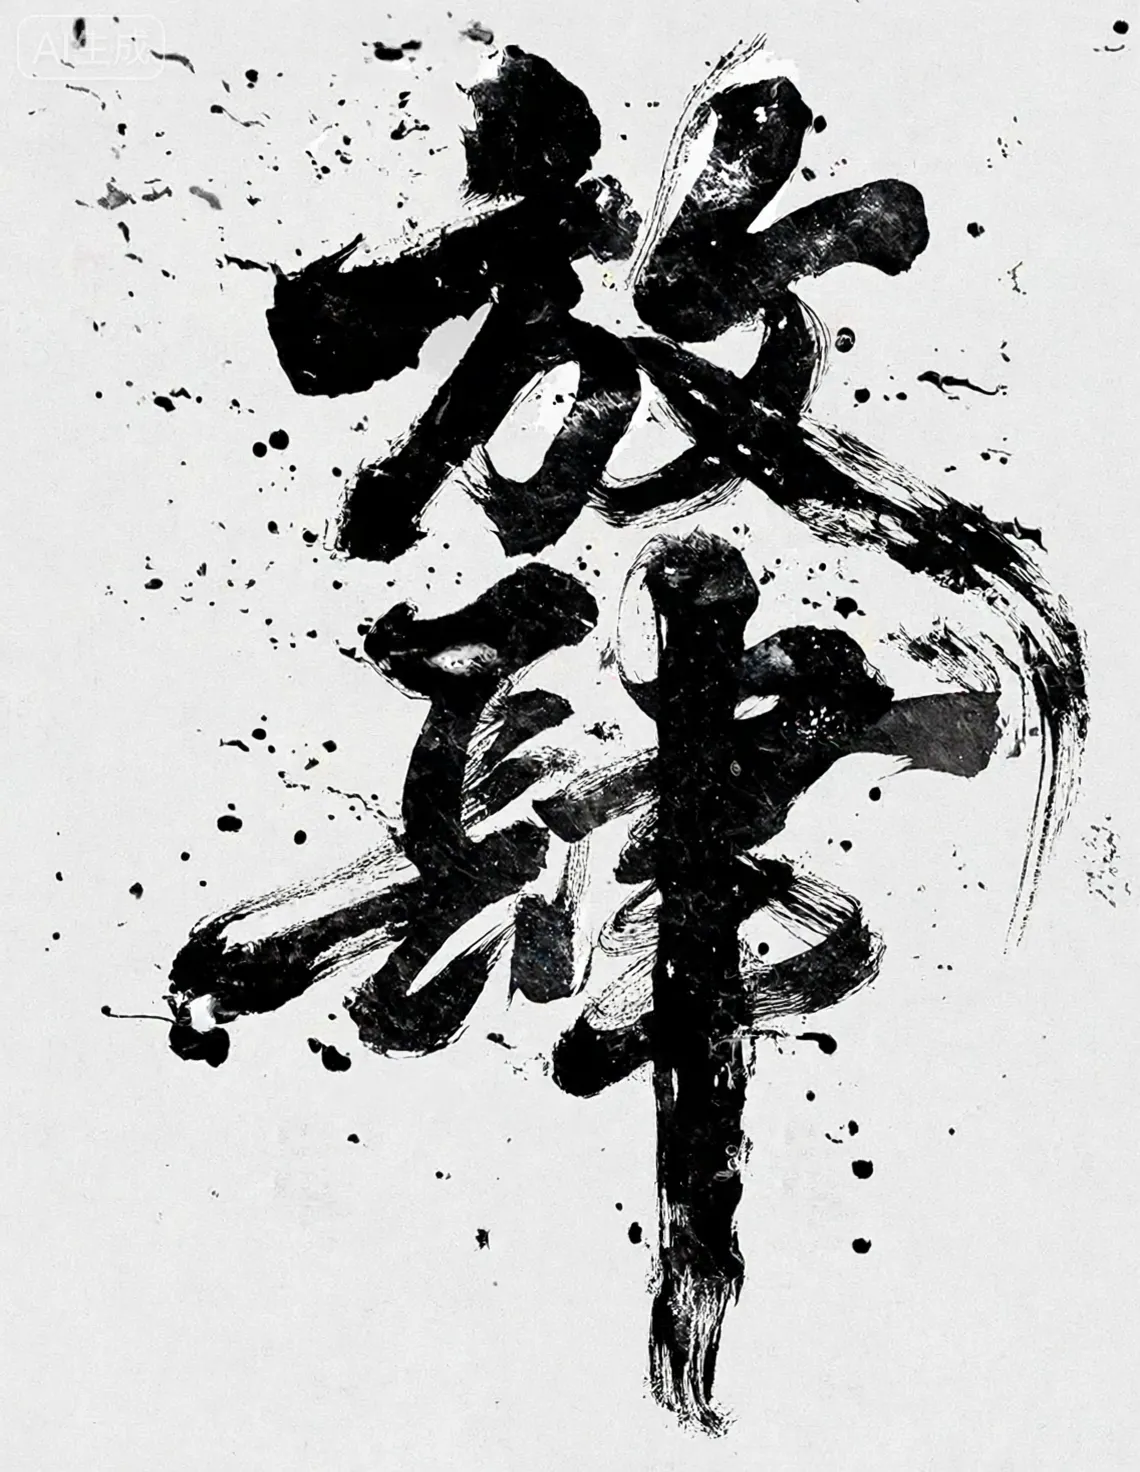 AI生成
放肆